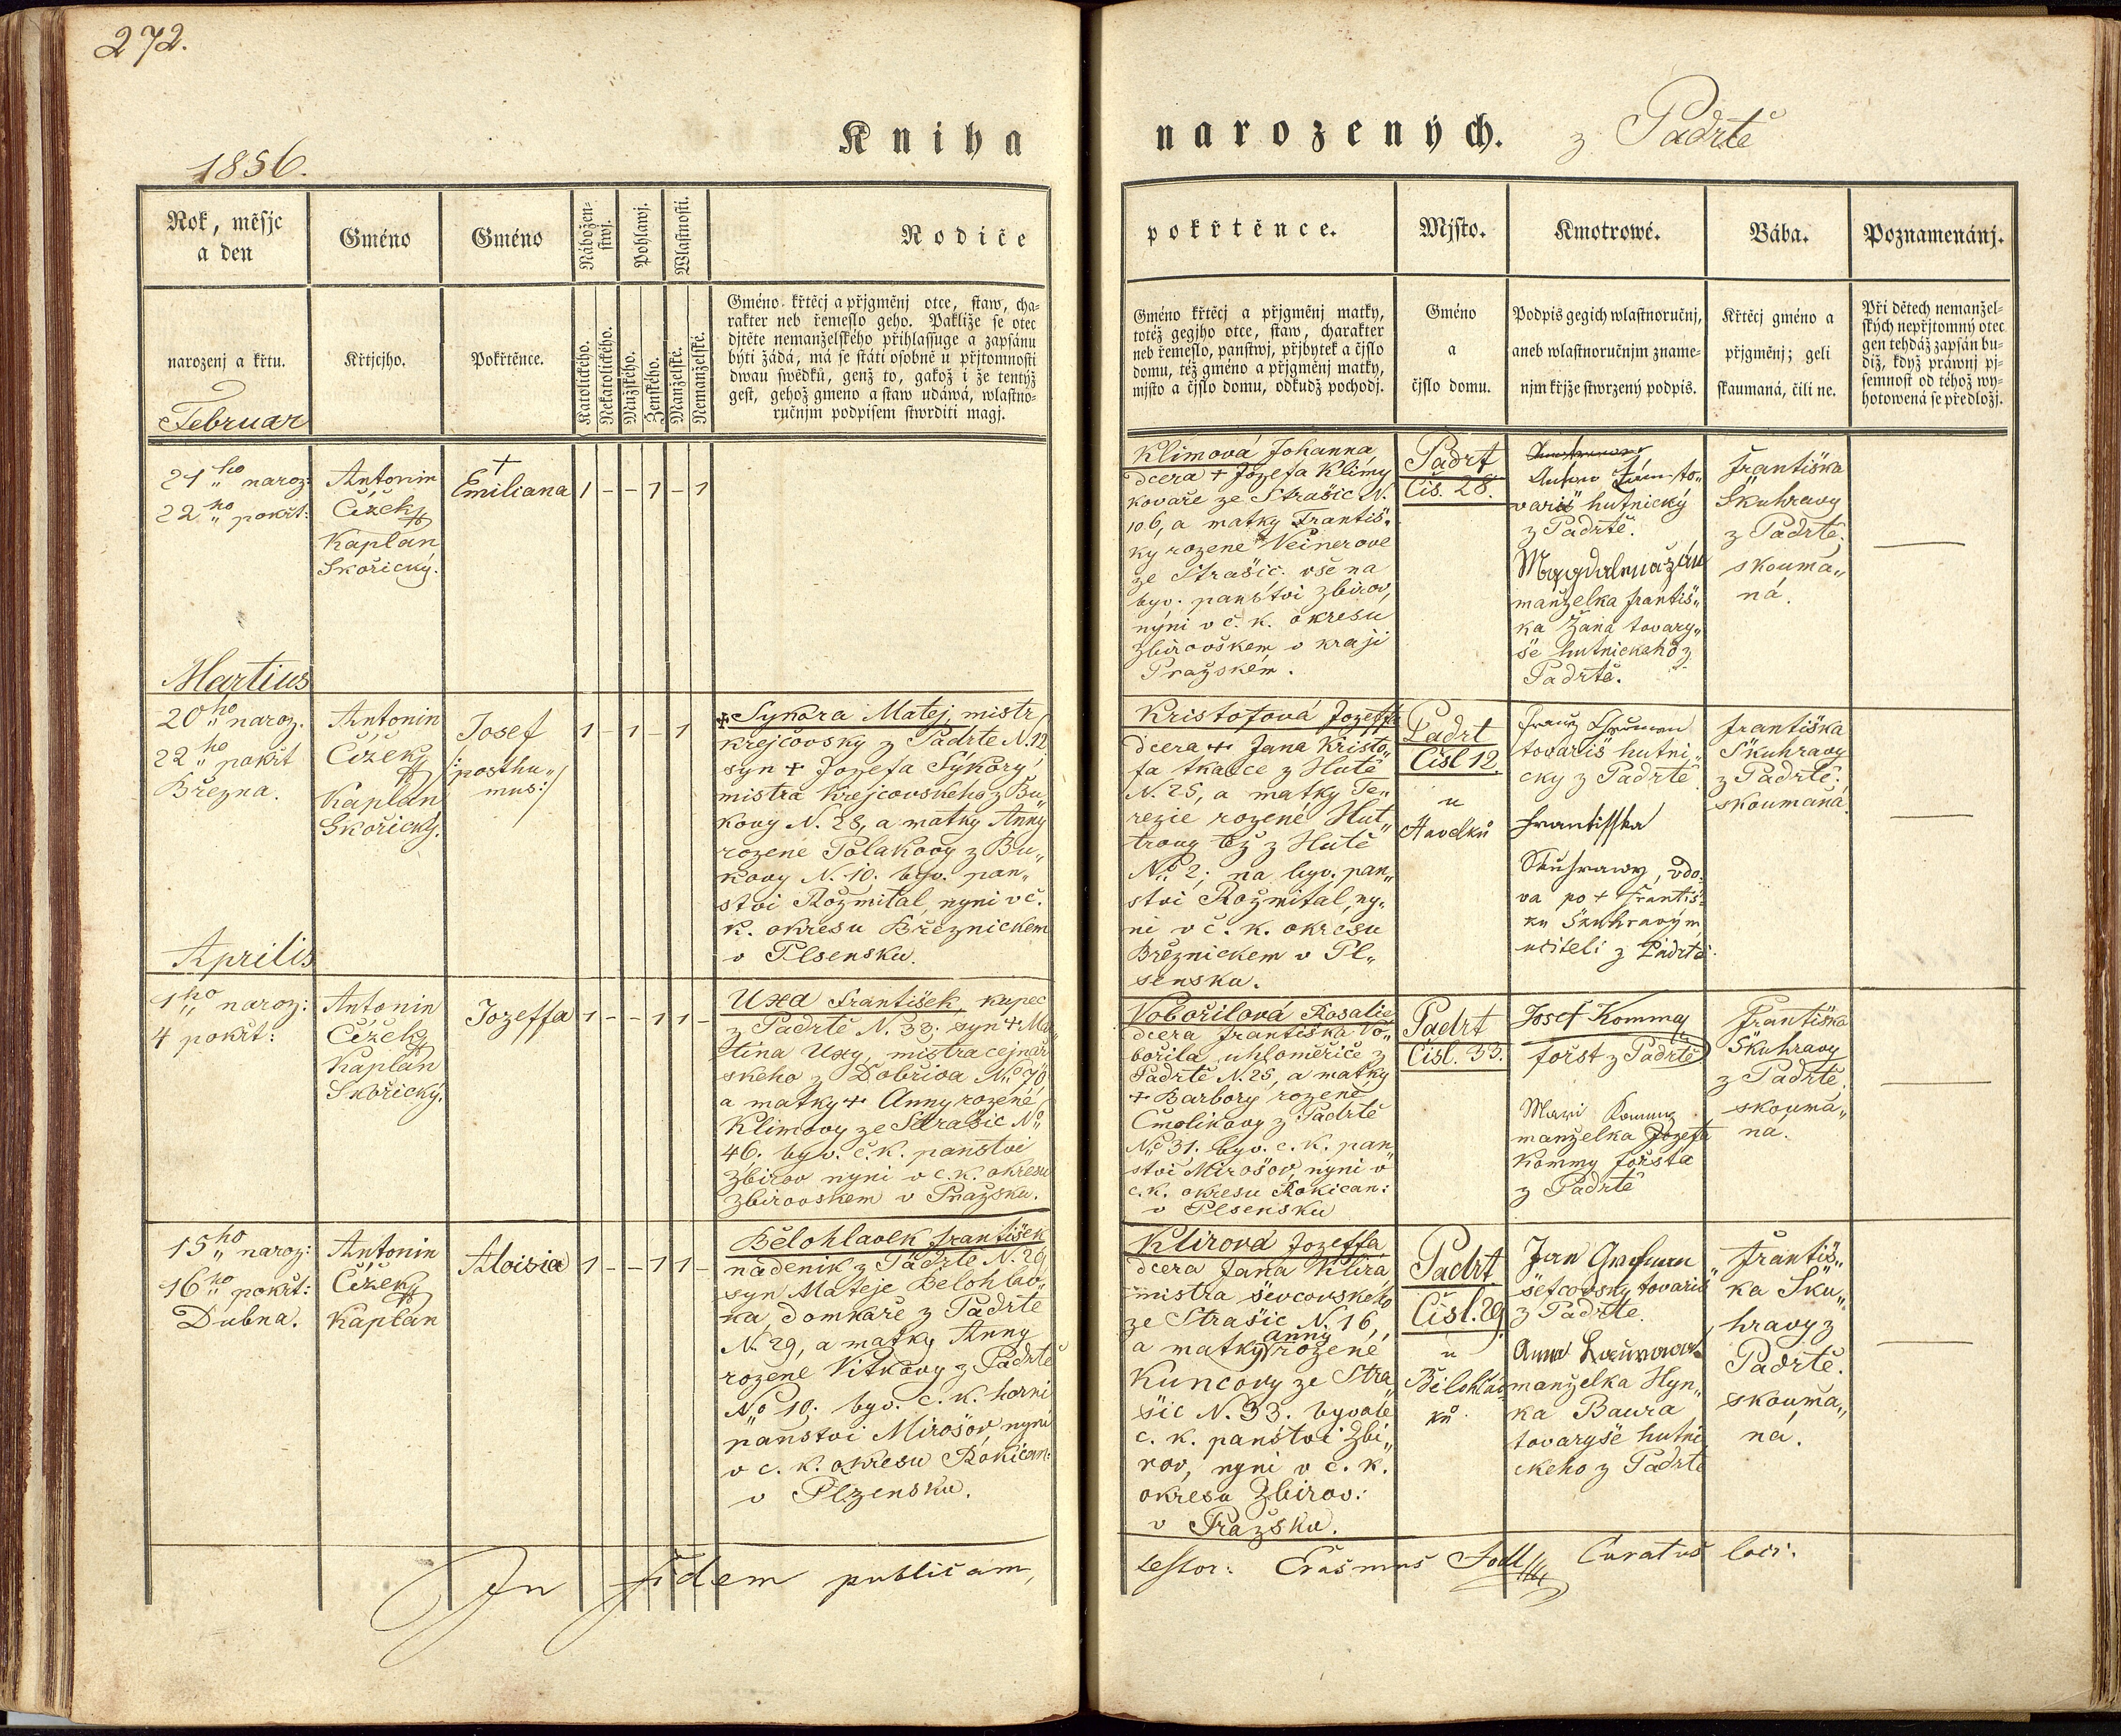 272.
Kniha
narozených. z Padrtě
1856.
Rok, měsjc
a den
Gméno
Gméno
Nábožen-
stwj.
Pohlawj.
Wlastnosti.
Rodiče
narozenj a křtu.
Křtjcjho.
Pokřtěnce.
Katolického.
Nekatolického.
Mužského.
Ženského.
Manželské.
Nemanželské.
Gméno křtěcj a přjgměnj otce, staw, cha-
rakter neb řemeslo geho. Pakliže se otec
djtěte nemanželského přihlassuge a zapsánu
býti žádá, má se státi osobně u přjtomnosti
dwau swědků, genž to, gakož i že tentýž
gest, gehož gmeno a staw udáwá, wlastno-
ručnjm podpisem stwrditi magj.
pokřtěnce.
Mjsto.
Kmotrowé.
Bába.
Poznamenánj.
Gméno křtěcj a přjgměnj matky,
totéž gegjho otce, staw, charakter
neb řemeslo, panstwj, přjbytek a čjslo
domu, též gméno a přjgměnj matky,
mjsto a čjslo domu, odkudž pochodj.
Gméno
a
čjslo domu.
Podpis gegich wlastnoručnj,
aneb wlastnoručnjm zname-
njm křjže stwrzený podpis.
Křtěcj gméno a
přjgměnj; geli
skaumaná, čili ne.
Při dětech nemanžel-
ských nepřjtomný otec
gen tehdáž zapsán bu-
diž, když práwnj pj-
semnost od téhož wy-
hotowená se předložj.
Februar
21ho naroz:
22ho pokřt:
Antonin
Čížek
Kaplan
Skořický.
†
Emiliana
1 - - 1 - 1
Klimová Johanna
dcera + Jozefa Klimy
kovaře ze Strašic N.
106, a matky Františ„
ky rozené Veinerove
ze Strašic: vše na
byv. panství Zbirov,
nyní v č. k. okresu
Zbirovškém v kraji
Pražském.
Padrt
Čis. 28.
to„
variš hutnický
z Padrtě.
Magdalena
manželka Františ„
ka Žana tovary„
še hutnického z
Padrtě.
Františka
Skuhravy
z Padrtě,
skouma„
ná.
Martius
20ho naroz.
22ho pokřt
Března.
Antonin
Čížek
Kaplan
Skořický.
Josef
/:posthu„
mus:/
1 - 1 - 1
+ Sykora Matej, mistr
krejčovsky z Padrtě N. 12,
syn + Jozefa Sykory,
mistra krejčovskeho z Bu„
kovy N. 28, a matky Anny
rozene Polakovy z Bu„
kovy N. 10. byv. pan„
stvi Rožmital, nyni v č.
k. okresu Březnickem
v Plsensku.
Kristofová Jozeffa
dcera + Jana Kristo„
fa tkalce z Hutě
N. 25, a matky Te„
rezie rozené Hut„
trovy též z Hutě
No 2; na byv. pan„
stvi Rožmital, ny„
ni v č. k. okresu
Březnickem v Pl„
sensku.
Padrt
Čisl 12.
u
Havelků
Franz
tovariš hutni„
cky z Padrtě
Frantisska
Skuhrawy, vdo„
va po + Františ„
ku Skuhravým
učiteli z Padrtě.
Františka
Skuhravy
z Padrtě.
skoumaná
Aprilis
1ho naroz:
4 pokřt:
Antonin
Čížek
Kaplan
Skořický.
Jozeffa
1 - - 1 1 -
Uxa František, kupec
z Padrtě N. 33. syn + Ma„
tina Uxy, mistra cejnař
skeho z Dobřiva No 70,
a matky + Anny rozené
Klimovy ze Strašic No
46. byv. č. k. panstvi
Zbirov nyni v c. k. okresu
Zbirovskem v Pražsku.
Vobořilová Rosalie
dcera Františka Vo„
bořila uhloměřiče z
Padrtě N. 25, a matky
+ Barbory rozené
Čmolikovy z Padrtě
No 31. byv. c. k. pan„
stvi Mirošov, nyni v
c. k. okresu Rokican:
v Plsensku
Padrt
Čisl. 33.
Josef Kommy
foršt z Padrtě
Mari Kommy
manželka Jozefa
Kommy foršta
z Padrtě
Františka
Skuhravy
z Padrtě.
skouma„
ná.
15ho naroz:
16ho pokřt:
Dubna.
Antonin
Čížek
Kaplan
Aloisia
1 - - 1 1 -
Bělohlavek František
nadenik z Padrtě N. 29
syn Mateje Bělohlav„
ka, domkaře z Padrtě
N. 29, a matky Anny
rozené Vitkovy z Padrtě
No 10. byv. c. k. horni
panstvi Mirošov, nyni
v c. k. okresu Rokican:
v Plzensku.
Klirová Jozeffa
dcera Jana Klira,
mistra ševcovskeho
ze Strašic N. 16,
anny
a matky rozené
Kuncovy ze Stra„
šic N. 33. byvale
c. k. panstvi Zbi„
rov, nyni v c. k.
okresu Zbirov:
v Pražsku.
Padrt
Čisl. 29
u
Bělohláv„
ků.
Jan
šefcovsky tovariš
z Padrtě.
Anna
manželka Hyn„
ka Baura
tovaryše hutni„
ckeho z Padrtě
Františ„
ka Sku„
hravy z
Padrtě.
skouma„
ná.
In fidem publicam,
Testor: Erasmus Curatus loci.